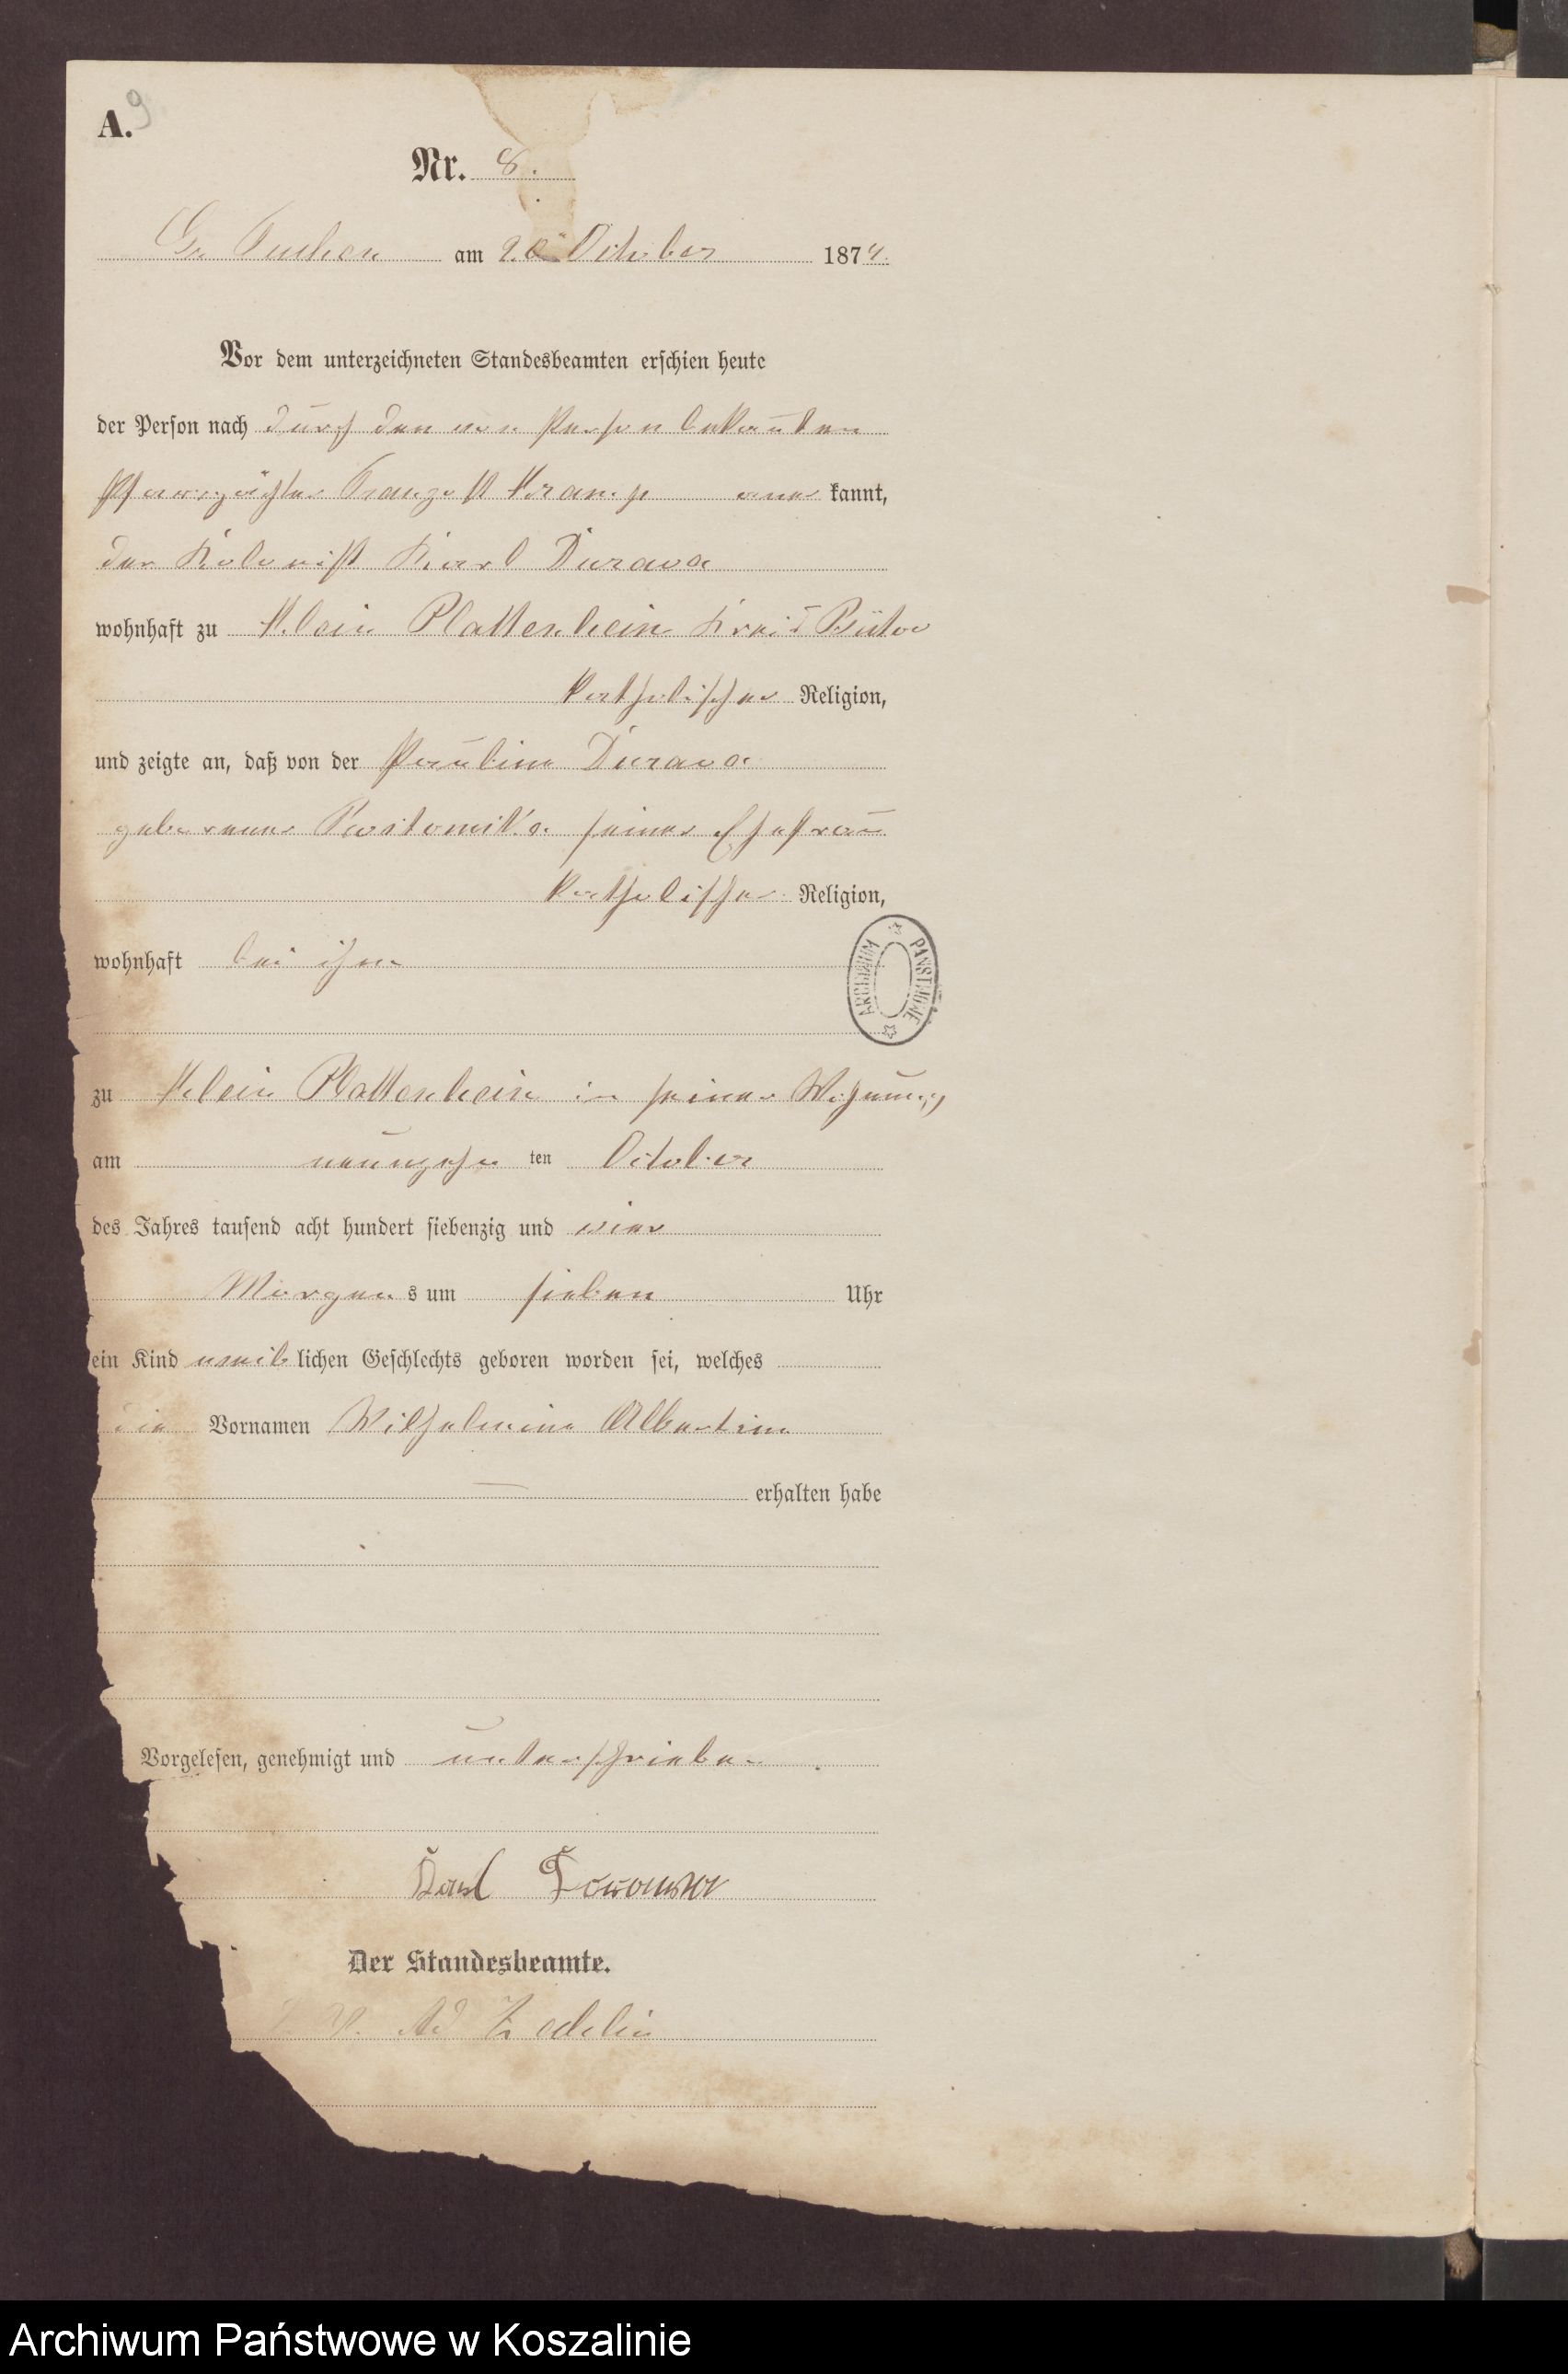 A. 9
Nr. 8.
Gr. Tuchen am 20 October 1874.
Vor dem unterzeichneten Standesbeamten erschien heute
der Person nach durch den von Person bekannten
Pfarrpächter kannt,
der Kolonist Karl Durawa
wohnhaft zu Klein Plattenhein Kreis Bütow
katholischer Religion,
und zeigte an, daß von der Pauline Durawa
geborener seiner Ehefrau
katholischer Religion,
wohnhaft bei ihm
ARCHIWUM PAŃSTWOWE
zu Klein Plattenhein in seiner Wohnung
am neunzehn ten October
des Jahres tausend acht hundert siebenzig und vier
Morgens um sieben Uhr
ein Kind weiblichen Geschlechts geboren worden sei, welches
die Vornamen Wilhelmine Albertine
— erhalten habe
Vorgelesen, genehmigt und unterschrieben.
Karl
Der Standesbeamte.
Archiwum Państwowe w Koszalinie